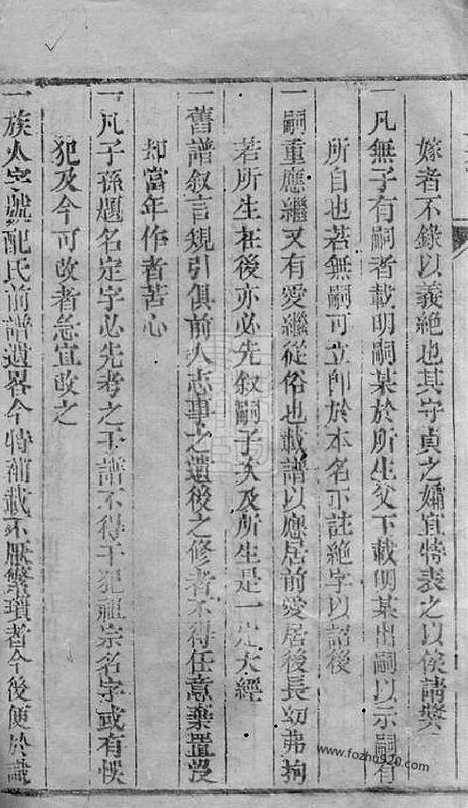 嫁者不錄以義絶也其守貞之孀宜特表之以俟請獎
一凡無子有嗣者載明嗣某於所生父下載明某出嗣以示嗣有
所自也若無嗣可立卽於本名下註絶字以詔後
一嗣重應繼又有愛繼從俗也載譜以應居前愛居後長幼弗拘
若所生在後亦必先叙嗣子次及所生是一定大經
一舊譜叙言規引俱前人志事之遺後之修者不得任意棄置沒
却當年作者苦心
一凡子孫題名定字必先考之于譜不得干犯祖宗名字或有悞
犯及今可改者急宜改之
一族人字號配氏前譜遺畧今特補載不厭繁瑣者令後便於識
www.fozhu920.com